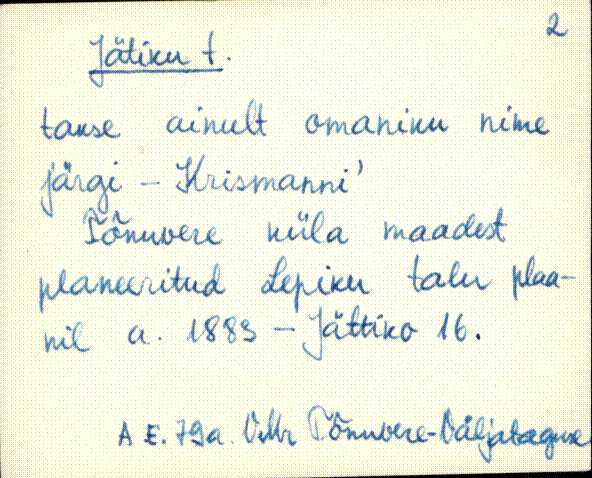 2
Jätiku t.
takse ainult omaniku nime
järgi - Krismanni'
Tõnuvere küla maadest
planeeritud Lepiku talu plaa-
nil a. 1883 - Jättiko 16.
A E. 79a. VMr Tõnuvere-Väljataguse